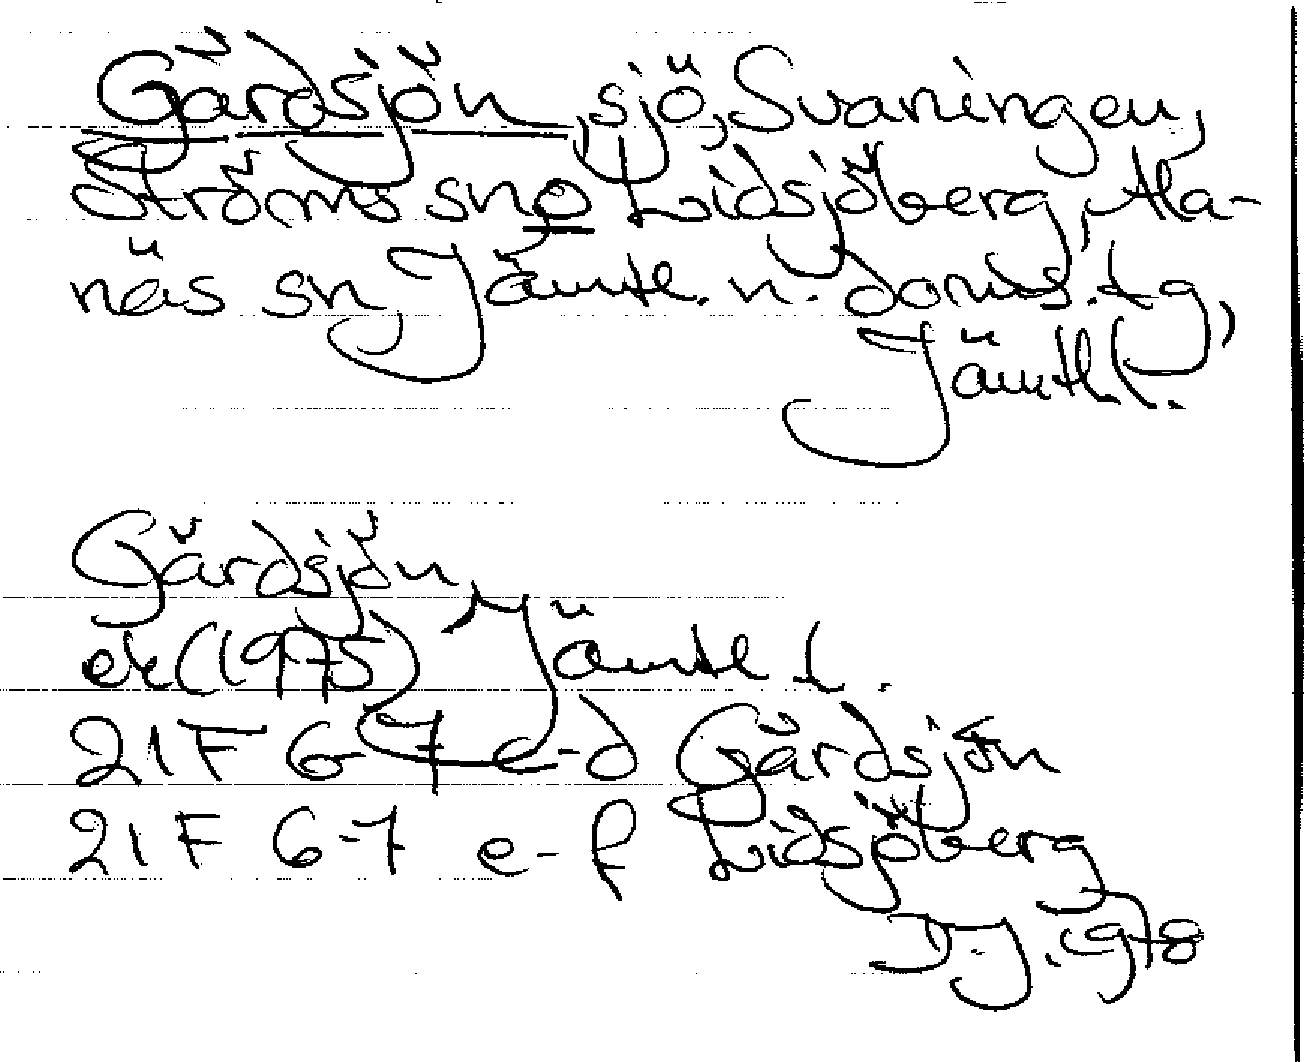 Gårdsjön, sjö, Svaningen,
Ströms sn o Lidsjöberg, Ala-
näs sn, Jämtl. n. doms. tg,
Jämtl l.
Gårdsjön,
ek (1975) Jämtl l.
21F 6-7 c-d Gårdsjön
21F 6-7 e-f Lidsjöberg
D.J. 1978